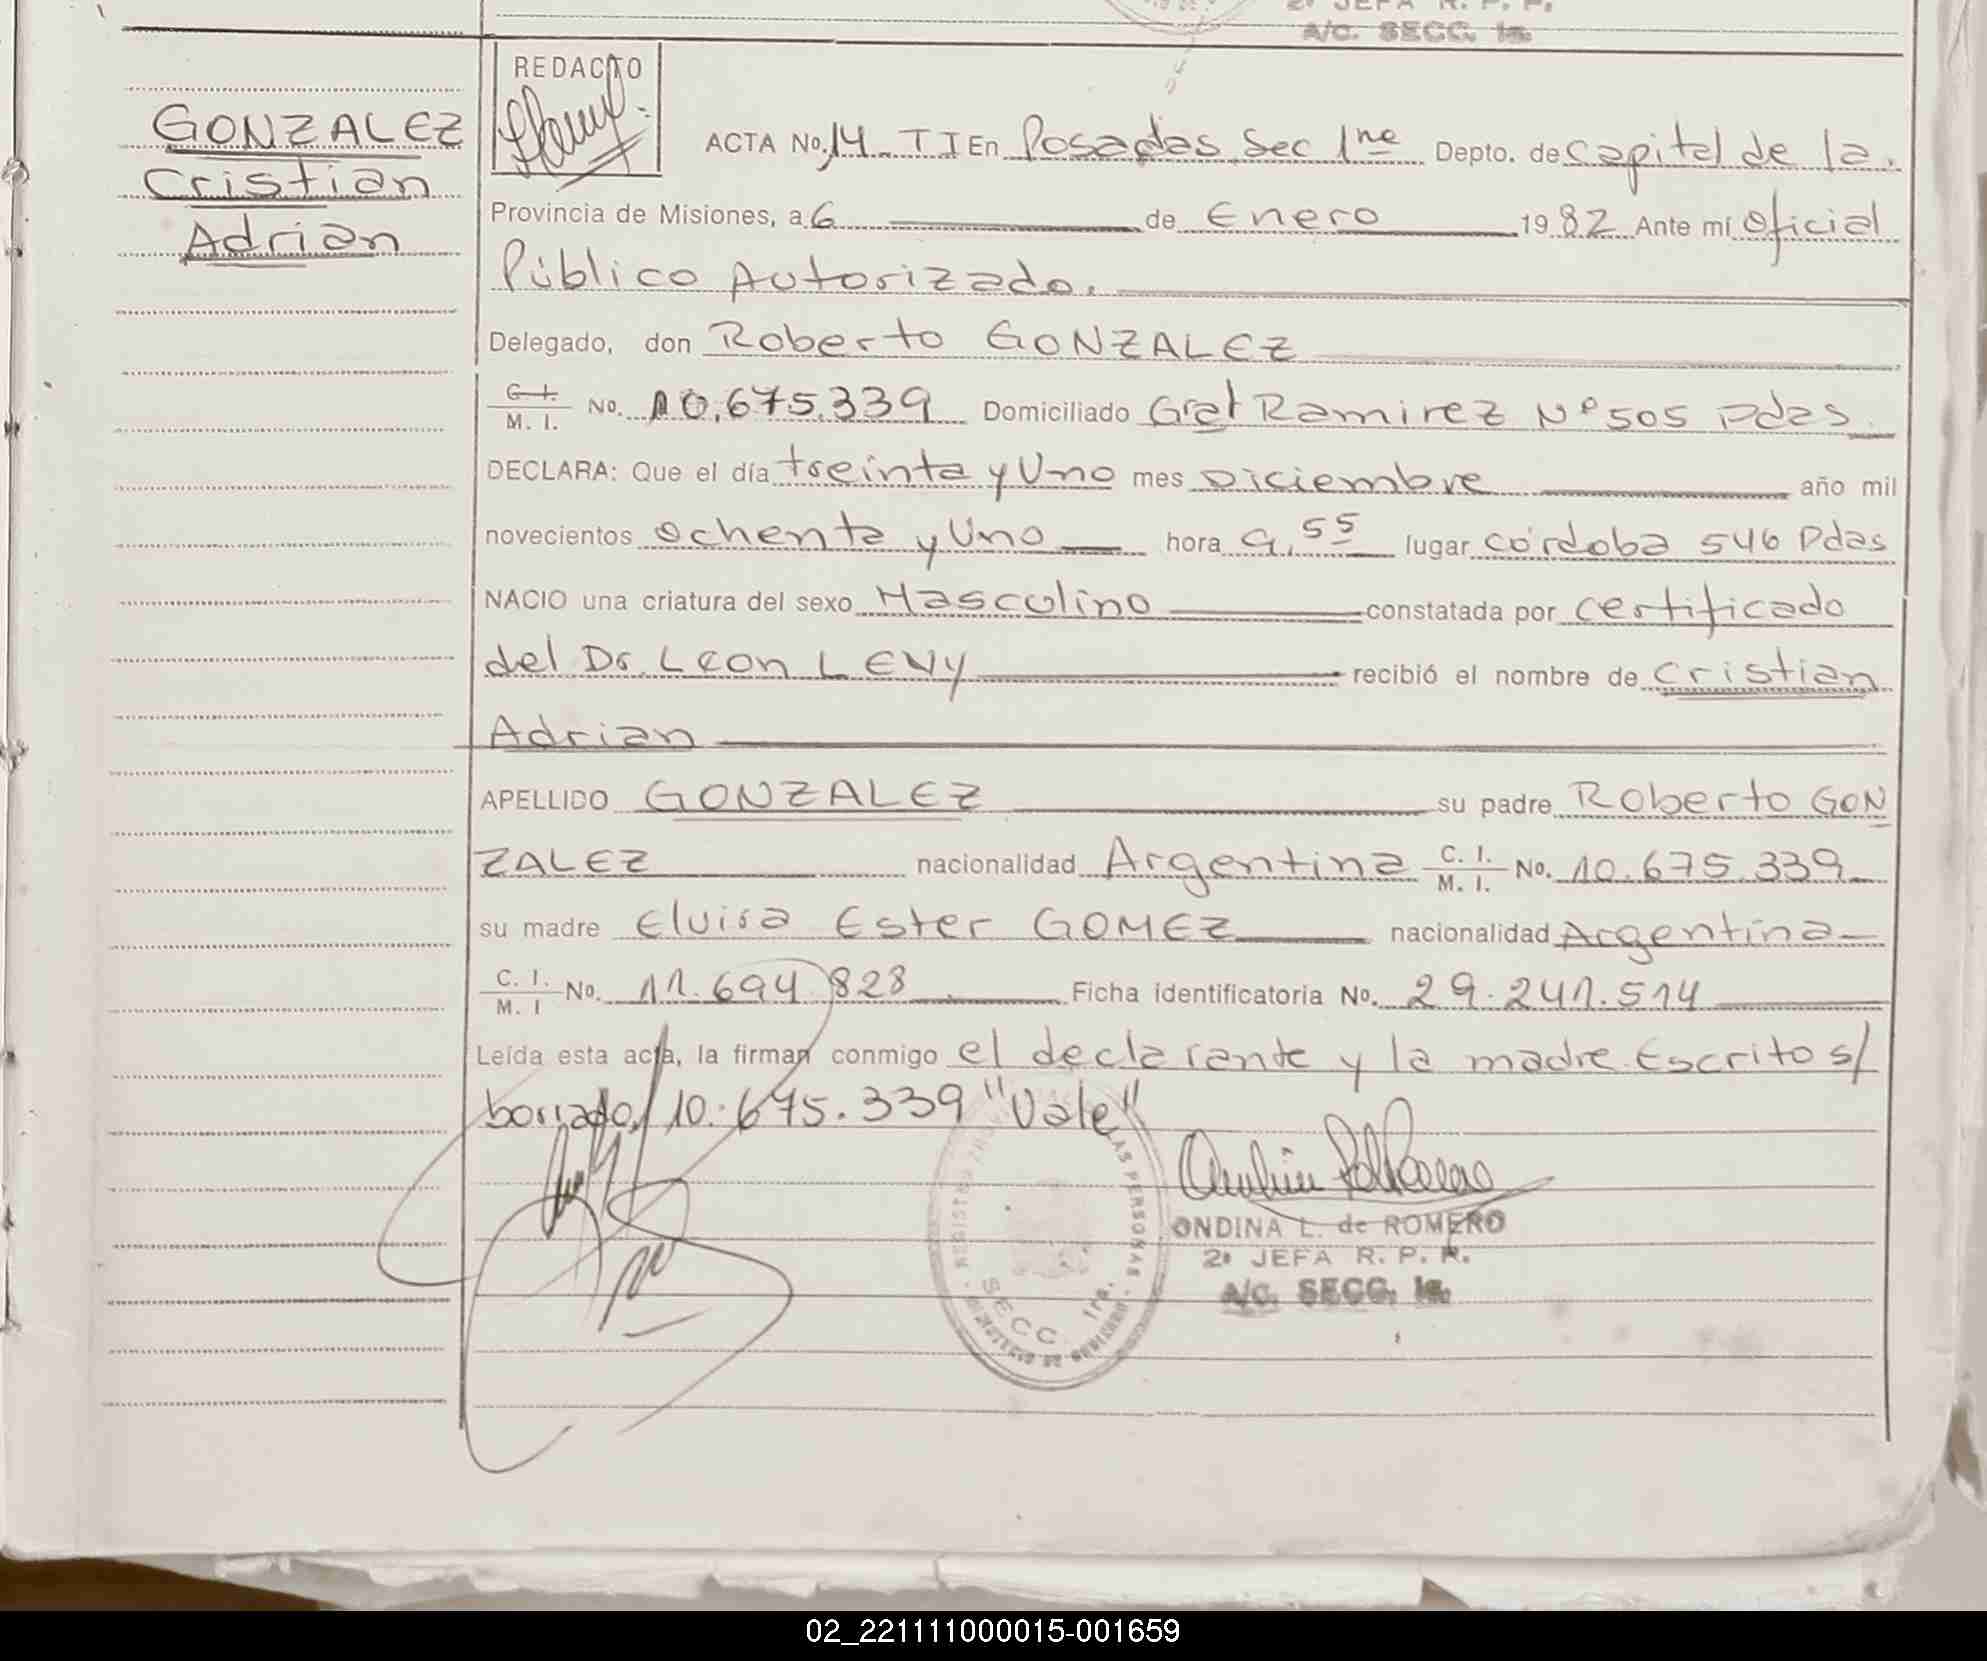 2º JEFA R. P. P.
A/C. SECC. 1a.
GONZALEZ
Cristian
Adrian
REDACTO
ACTA No. 14 TI En Posadas Sec 1ra Depto. de Capital de la
Provincia de Misiones, a 6 de Enero 1982 Ante mí Oficial
Público Autorizado.
Delegado, don Roberto GONZALEZ
C. I. M. I. No. 10.675.339 Domiciliado Gral Ramirez Nº 505 Pdas
DECLARA: Que el día treinta y Uno mes Diciembre año mil
novecientos ochenta y Uno hora 9,55 lugar córdoba 546 Pdas
NACIO una criatura del sexo Masculino constatada por certificado
del Dr. Leon LEVY recibió el nombre de Cristian
Adrian
APELLIDO GONZALEZ su padre Roberto GON
ZALEZ nacionalidad Argentina C. I. M. I. No. 10.675.339
su madre Elvira Ester GOMEZ nacionalidad Argentina
C. I. M. I No. 11.694.828 Ficha identificatoria No. 29.241.514
Leída esta acta, la firman conmigo el declarante y la madre. Escrito s/
borrado, 10.675.339 "Vale"
REGISTRO PROVINCIAL DE LAS PERSONAS
SECC 1ra.
MINISTERIO DE GOBIERNO
ONDINA L. de ROMERO
2º JEFA R. P. P.
A/C. SECC. 1a.
02_221111000015-001659